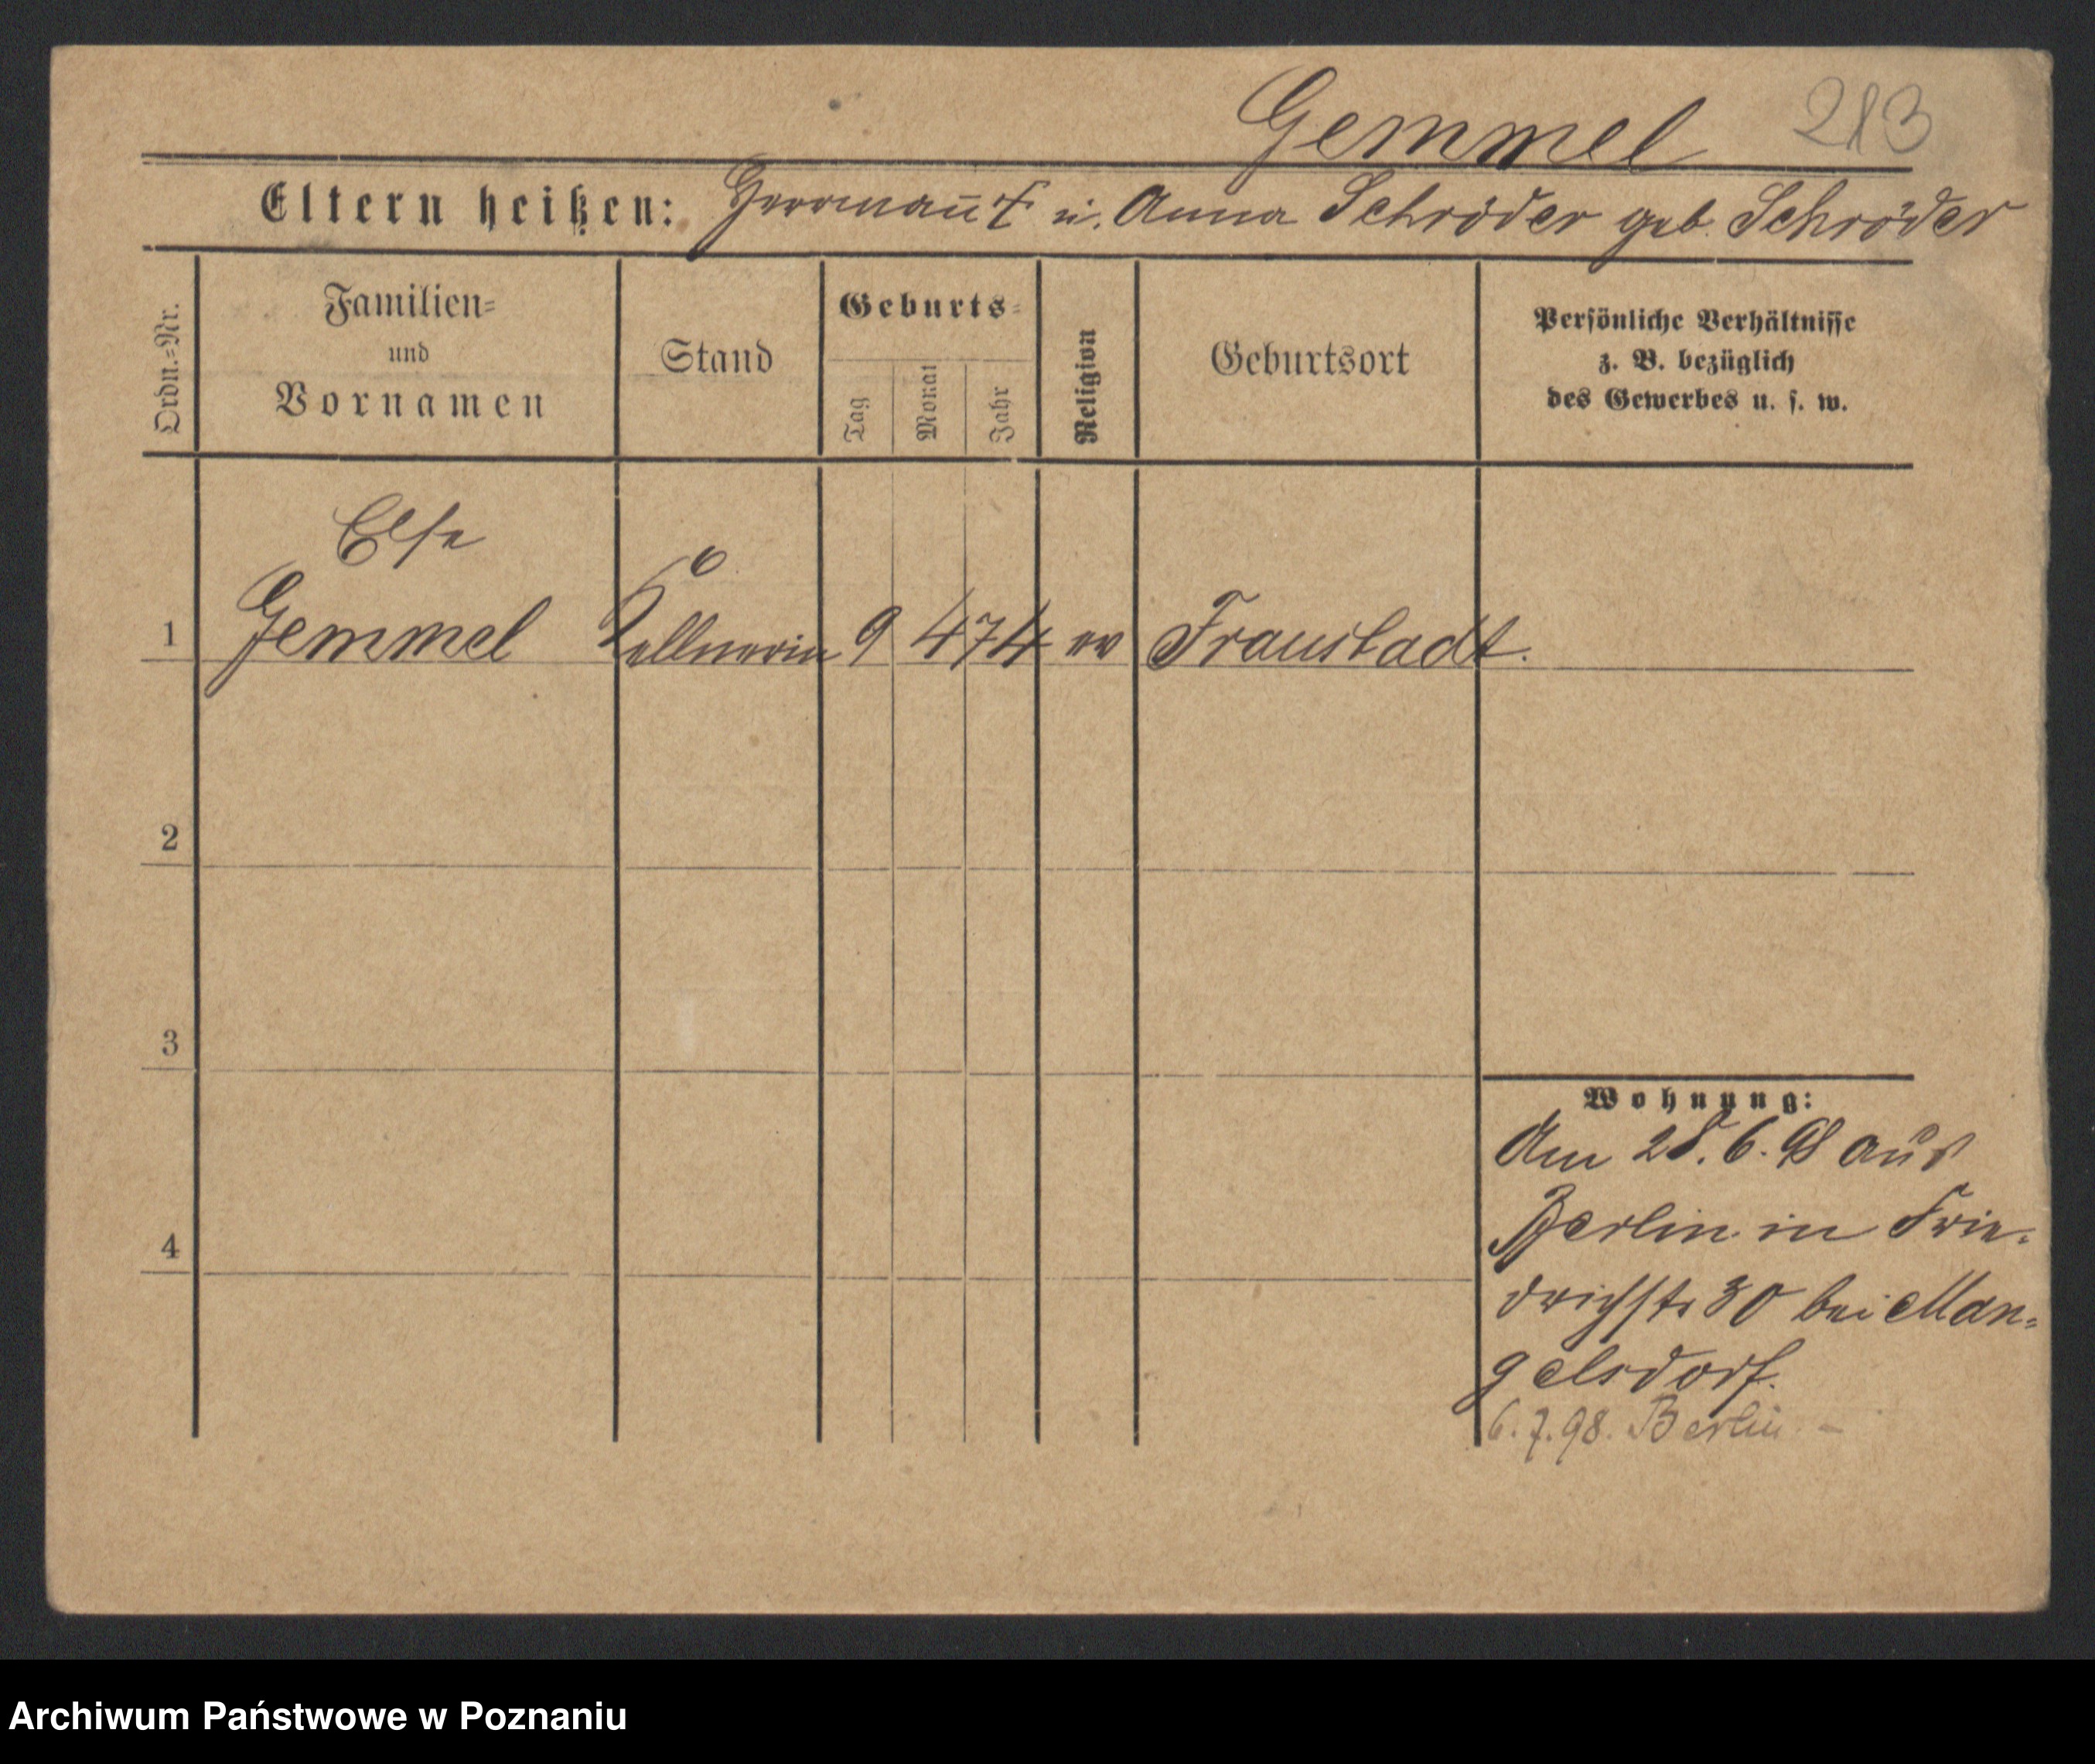 Gemmel 213
Eltern heißen: Herrman̄ † u. Anna Schröder geb. Schröder
Ordn.-Nr.
Familien-
und
Vornamen
Stand
Geburts-
Tag
Monat
Jahr
Religion
Geburtsort
Persönliche Verhältnisse
z. B. bezüglich
des Gewerbes u. s. w.
Else
1 Gemmel Kellnerin 9 4 74 ev Fraustadt.
2
3
4
Wohnung:
Am 28. 6. 98 aus
Berlin in Frie-
drichstr 30 bei Man-
gelsdorf.
6. 7. 98. Berlin. –
Archiwum Państwowe w Poznaniu